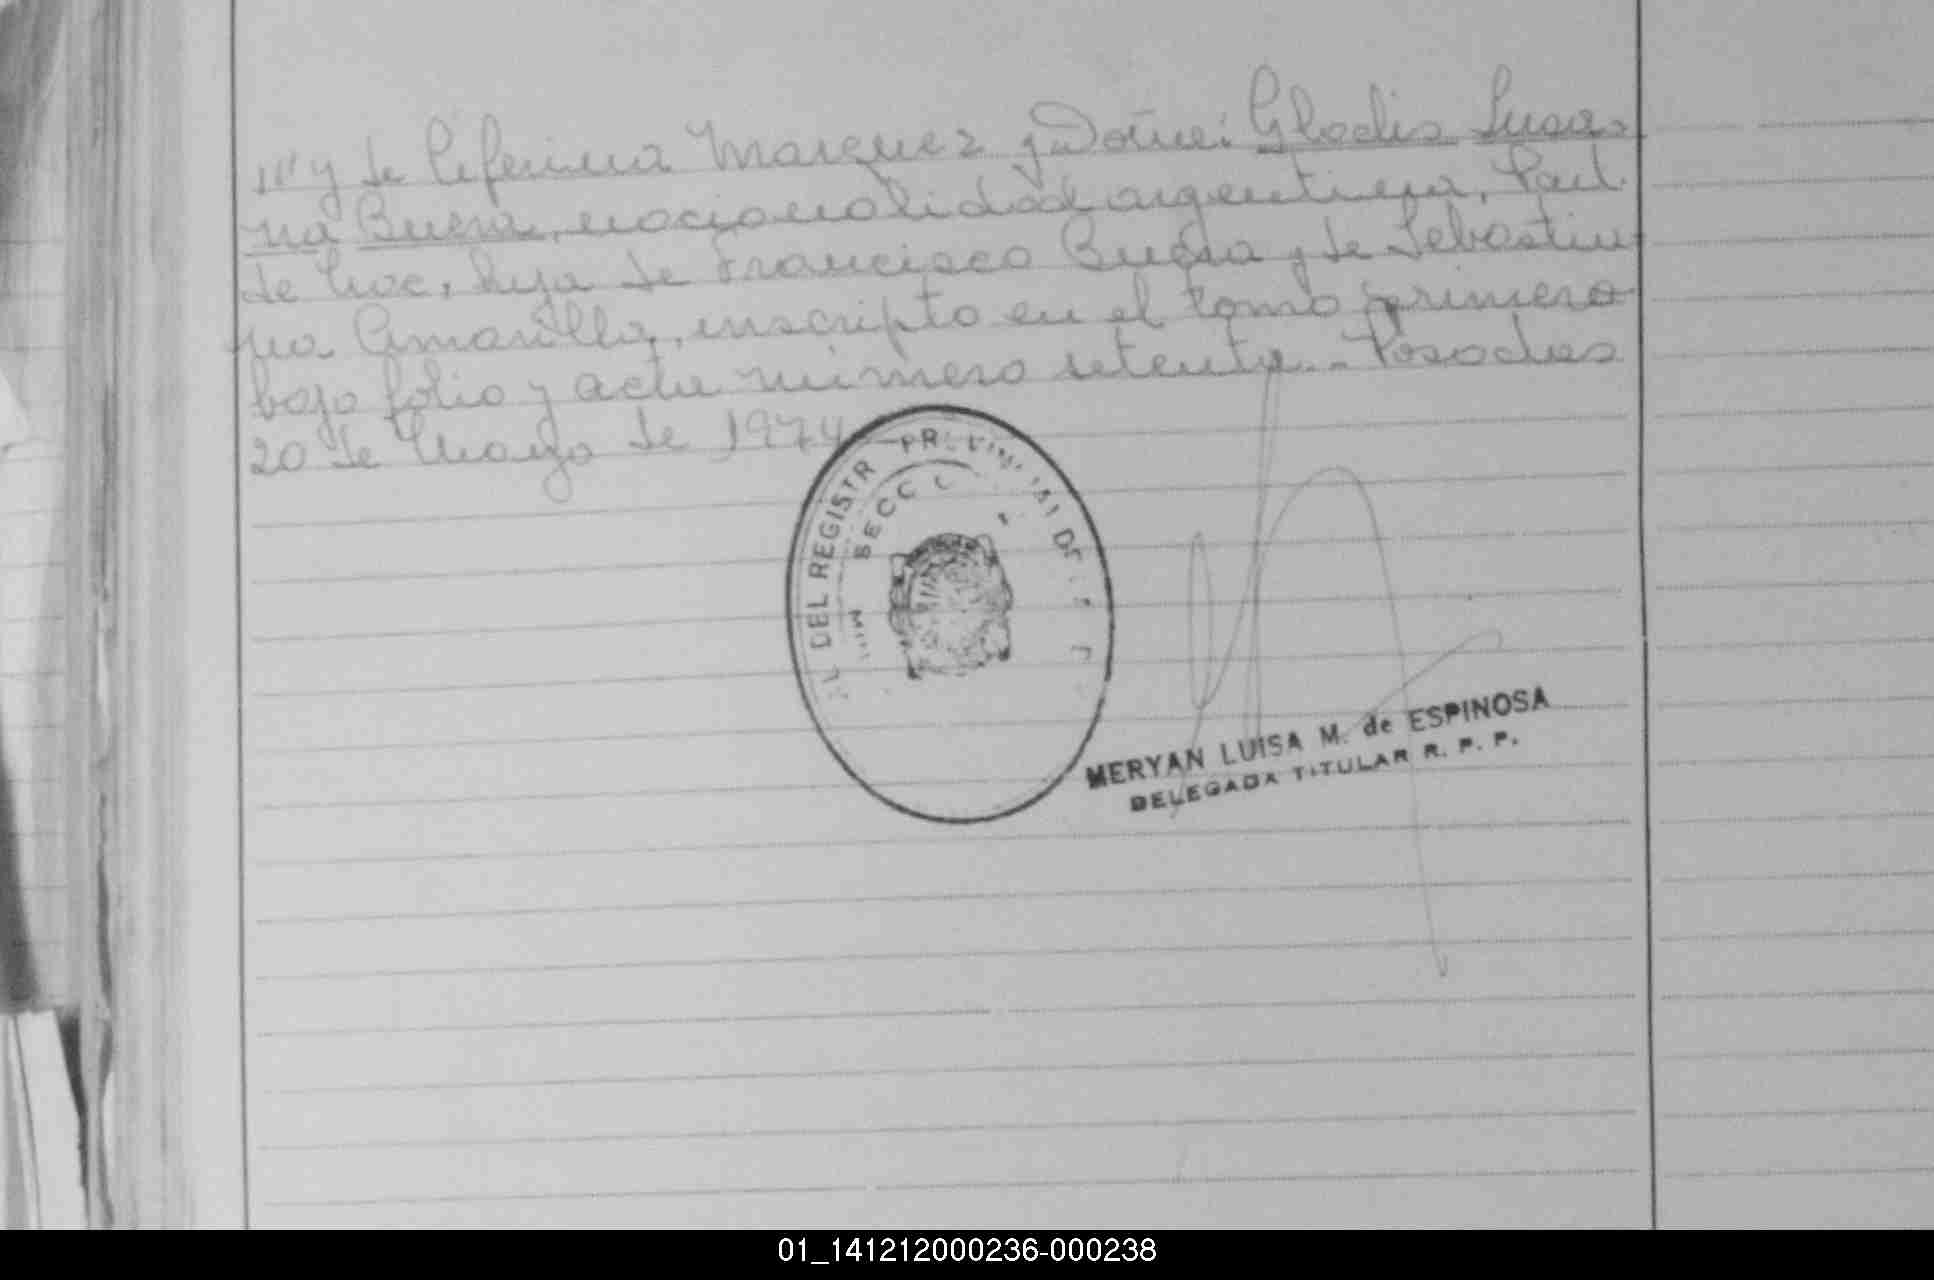 y de Ceferina Marquez y Doña: Gladis Susa-
na Buera, nacionalidad argentina,
de hoc, hija de Francisco Buera y de Sebastia-
na Amarilla, inscripto en el tomo primero
bajo folio y acta número setenta.- Posadas
20 de Mayo de 1974
DEL REGISTR PR DE
SECC
MERYAN LUISA M. de ESPINOSA
DELEGADA TITULAR R. P. P.
01_141212000236-000238